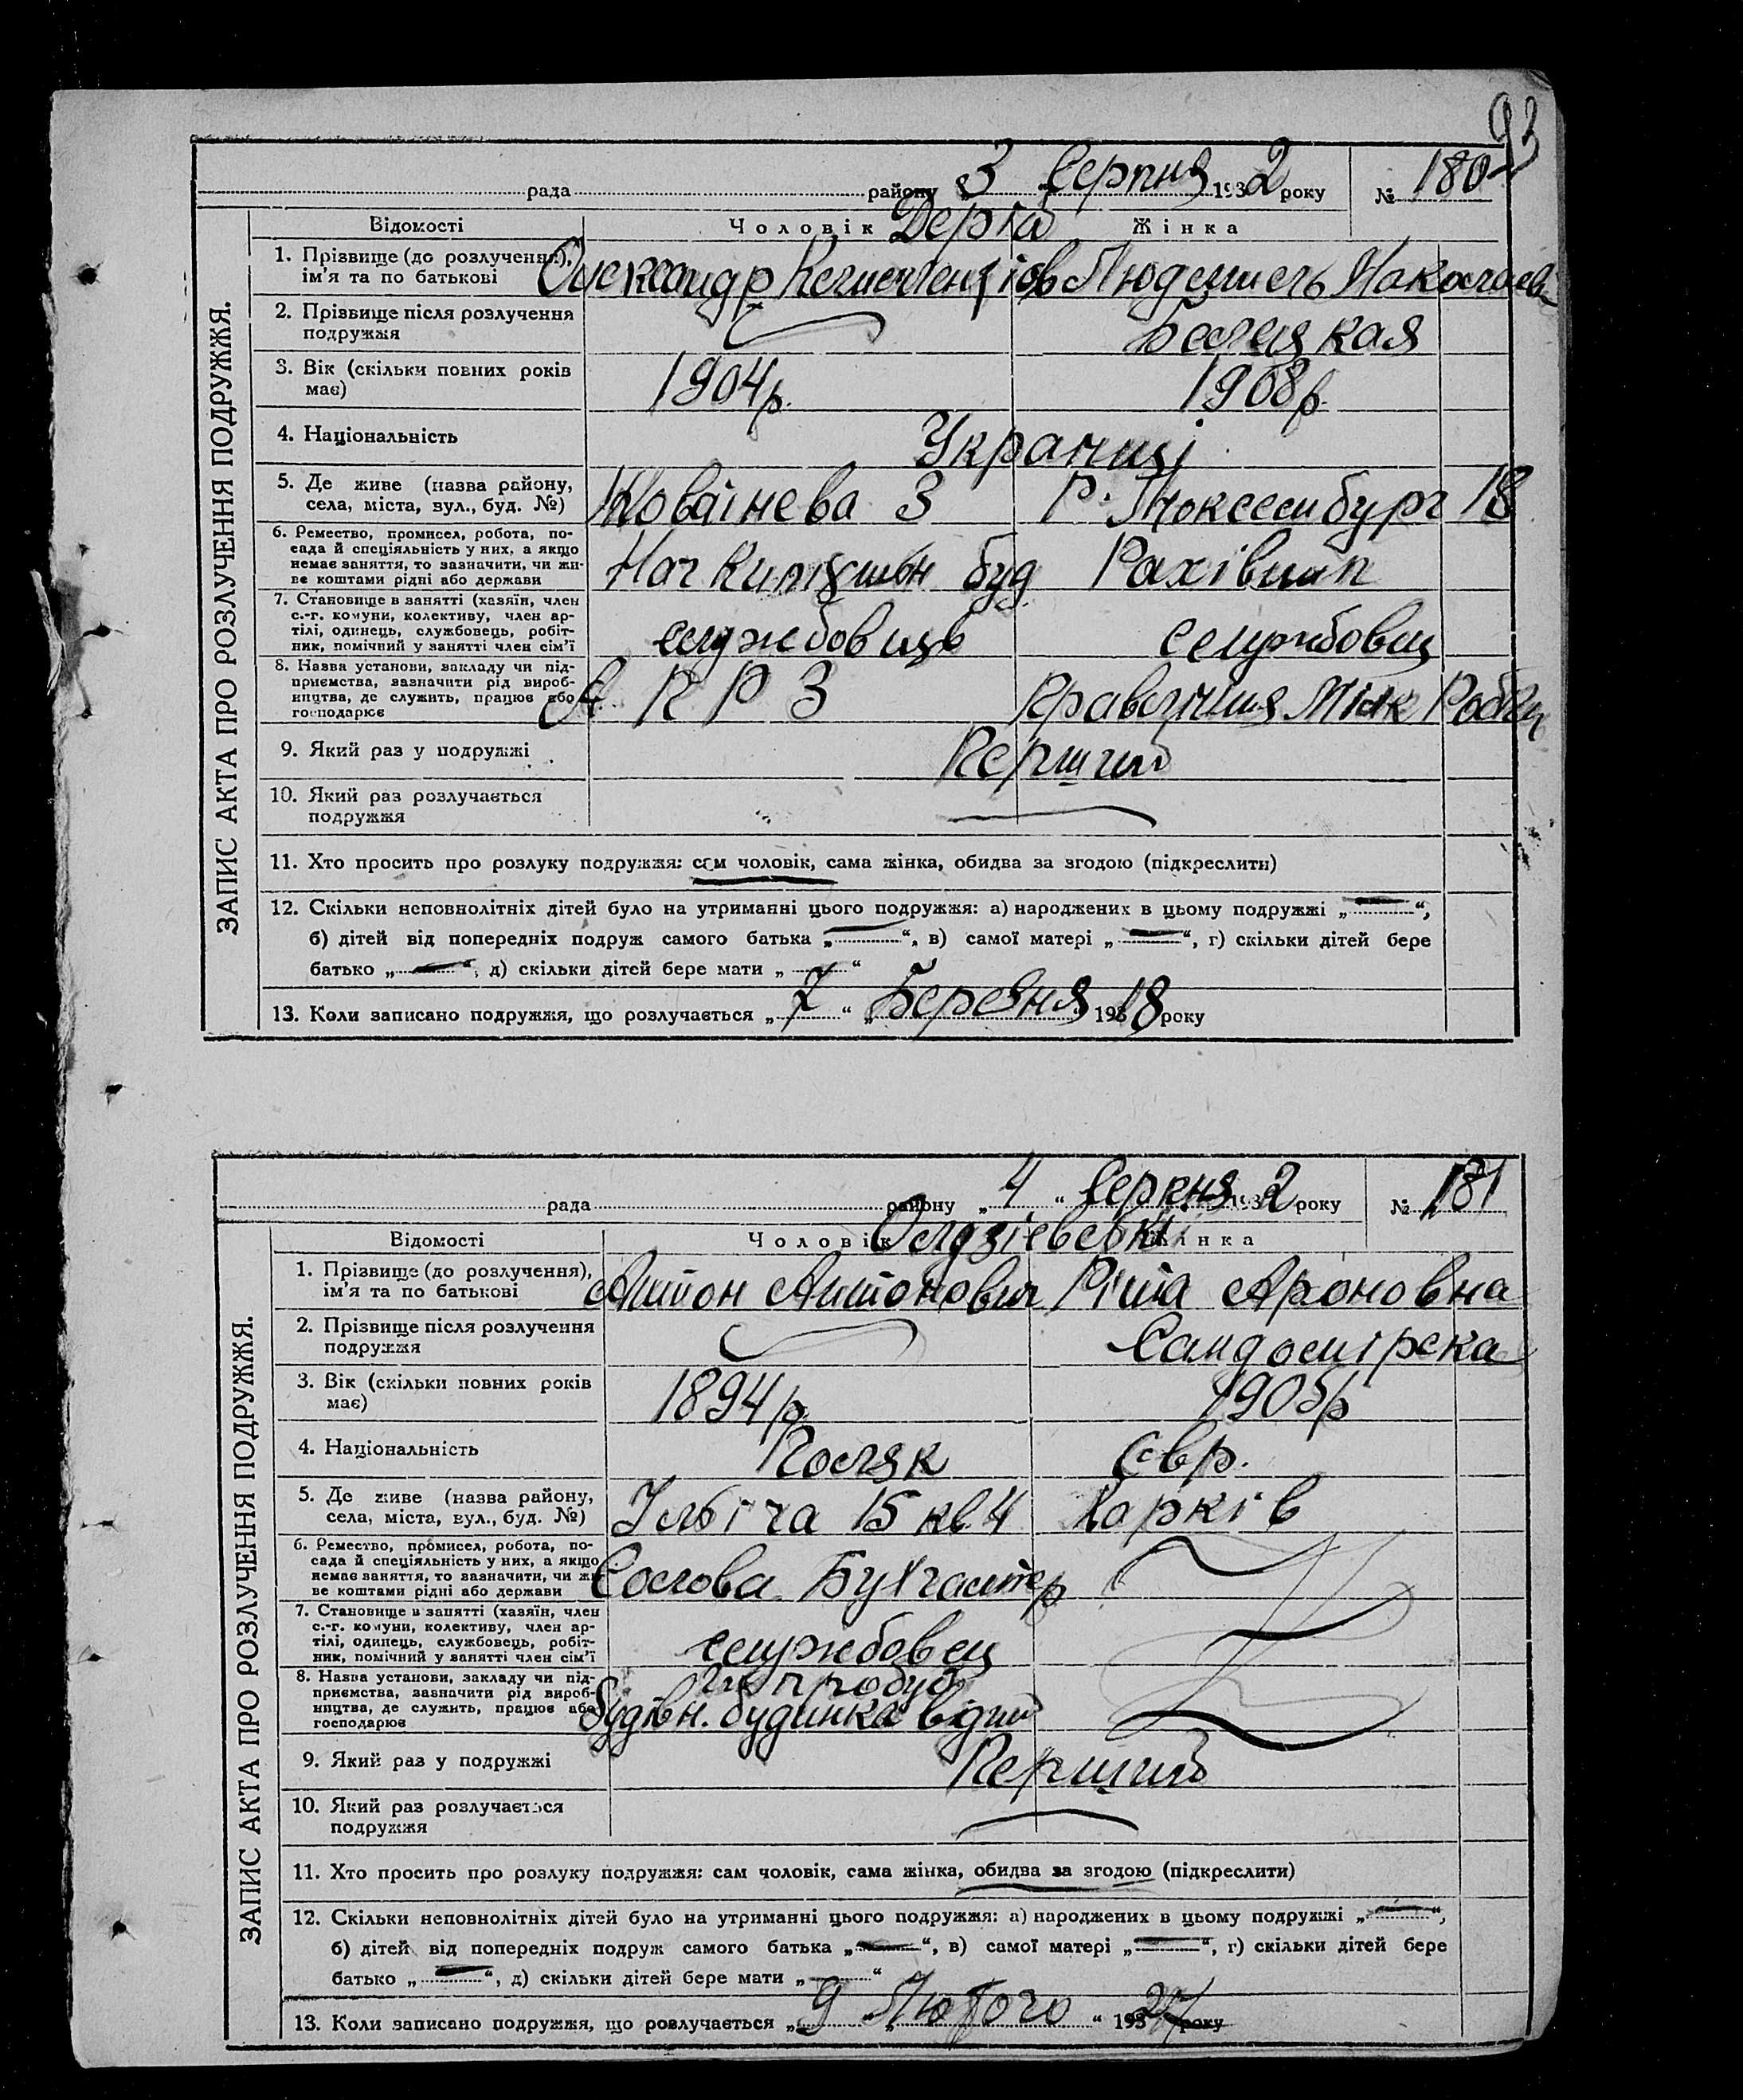 93
рада району 3 Серпня 1932 року № 180
Відомості Чоловік Дерга Жінка
ЗАПИС АКТА ПРО РОЗЛУЧЕННЯ ПОДРУЖЖЯ.
1. Прізвище (до розлучення), ім'я та по батькові Олександр
2. Прізвище після розлучення подружжя
3. Вік (скільки повних років має) 1904р. 1908р.
4. Національність
5. Де живе (назва району, села, міста, вул., буд. №) 3 Р. 18
6. Ремество, промисел, робота, по-
сада й спеціяльність у них, а якщо
немає заняття, то зазначити, чи жи-
ве коштами рідні або держави буд
7. Становище в занятті (хазяїн, член
с.-г. комуни, колективу, член ар-
тілі, одинець, службовець, робіт-
ник, помічний у занятті член сім'ї службовець службовец
8. Назва установи, закладу чи під-
приємства, зазначити рід вироб-
ництва, де служить, працює або
господарює А Р Р З
9. Який раз у подружжі Перший
10. Який раз розлучається
подружжя
11. Хто просить про розлуку подружжя: сам чоловік, сама жінка, обидва за згодою (підкреслити)
12. Скільки неповнолітніх дітей було на утриманні цього подружжя: а) народжених в цьому подружжі „ — “,
б) дітей від попередніх подруж самого батька „ — “, в) самої матері „ — “, г) скільки дітей бере
батько „ — “, д) скільки дітей бере мати „ — “
13. Коли записано подружжя, що розлучається „7“ „Березня 193 18 року
рада району „4“ Серпня 1932 року № 181
Відомості Чоловік Жінка
ЗАПИС АКТА ПРО РОЗЛУЧЕННЯ ПОДРУЖЖЯ.
1. Прізвище (до розлучення),
ім'я та по батькові Антон Антонович Ріта Ароновна
2. Прізвище після розлучення
подружжя Сандомірска
3. Вік (скільки повних років
має) 1894р. 1905р
4. Національність Поляк Євр.
5. Де живе (назва району,
села, міста, вул., буд. №) Ілліча 15 кв. 4 Харків
6. Ремество, промисел, робота, по-
сада й спеціяльність у них, а якщо
немає заняття, то зазначити, чи жи-
ве коштами рідні або держави Бухгалтер
7. Становище в занятті (хазяїн, член
с.-г. комуни, колективу, член ар-
тілі, одинець, службовець, робіт-
ник, помічний у занятті член сім'ї службовец
8. Назва установи, закладу чи під-
приємства, зазначити рід вироб-
ництва, де служить, працює або
господарює Будівн. будинка
9. Який раз у подружжі Перший
10. Який раз розлучається
подружжя
11. Хто просить про розлуку подружжя: сам чоловік, сама жінка, обидва за згодою (підкреслити)
12. Скільки неповнолітніх дітей було на утриманні цього подружжя: а) народжених в цьому подружжі „ — “,
б) дітей від попередніх подруж самого батька „ — “, в) самої матері „ — “, г) скільки дітей бере
батько „ — “, д) скільки дітей бере мати „ — “
13. Коли записано подружжя, що розлучається „9 „Лютого“ 193 27 року